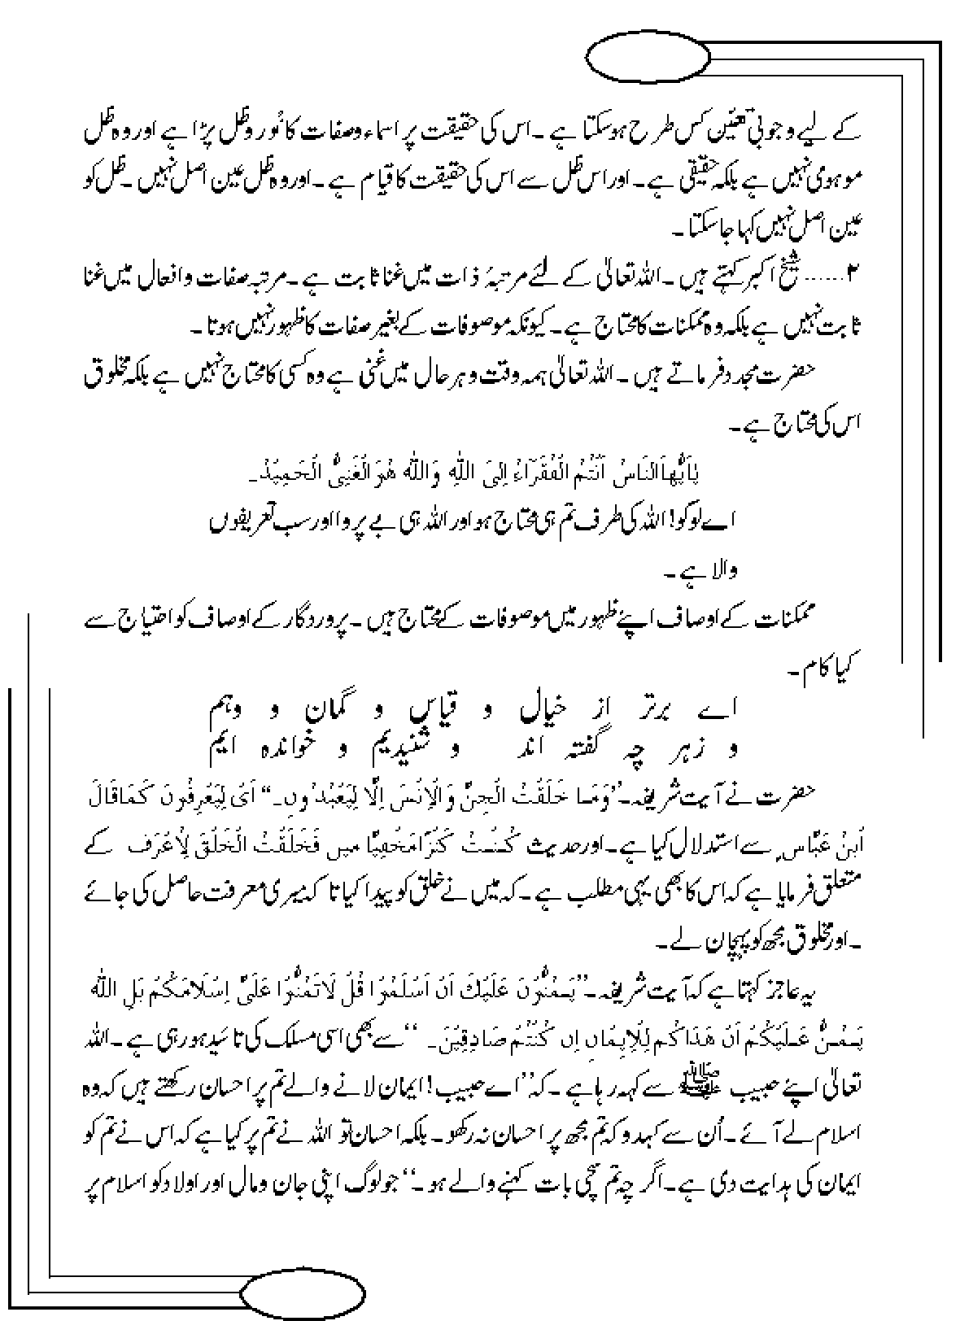 کے لیے وجوبی تعیّن کس طرح ہوسکتا ہے ۔ اس کی حقیقت پر اسماء وصفات کا نُور وظل پڑا ہے اور وہ ظل
موہوی نہیں ہے بلکہ حقیقی ہے ۔ اور اس ظل سے اس کی حقیقت کا قیام ہے ۔ اور وہ ظل عین اصل نہیں ۔ ظل کو
عین اصل نہیں کہا جاسکتا ۔
۲...... شیخ اکبر کہتے ہیں ۔ اللہ تعالیٰ کے لئے مرتبۂ ذات میں غنا ثابت ہے ۔ مرتبہ صفات وافعال میں غنا
ثابت نہیں ہے بلکہ وہ ممکنات کا محتاج ہے ۔ کیونکہ موصوفات کے بغیر صفات کا ظہور نہیں ہوتا ۔
حضرت مجدد فرماتے ہیں ۔ اللہ تعالیٰ ہمہ وقت و ہر حال میں غنی ہے وہ کسی کا محتاج نہیں ہے بلکہ مخلوق
اس کی محتاج ہے ۔
یٰاَیُّهاَالنَاسُ اَنْتُمُ الْفُقَرَآءُ اِلیَ اللّٰهِ وَاللّٰه هُوَالْغَنِیُّ الْحَمِیْدُ ۔
اے لوگو! اللہ کی طرف تم ہی محتاج ہو اور اللہ ہی بے پروا اور سب تعریفوں
والا ہے ۔
ممکنات کے اوصاف اپنے ظہور میں موصوفات کے محتاج ہیں ۔ پروردگار کے اوصاف کو احتیاج سے
کیا کام ۔
اے برتر از خیال و قیاس و گمان و وہم
و زہر چہ گفتہ اند و شنیدیم و خواندہ ایم
حضرت نے آیت شریفہ ۔ ’’وَمَا خَلَقْتُ الْجِنَّ وَالْاِنْسَ اِلَّا لِیَعْبُدُونِ ۔‘‘ اَیْ لِیَعْرِفُونَ کَمَاقَالَ
اَبنُ عَبَّاس ؓ سے استدلال کیا ہے ۔ اور حدیث کُنْتُ کَنْزًامَخْفِیًّا میں فَخَلَقْتُ الْخَلْقَ لِاُعْرَف کے
متعلق فرمایا ہے کہ اس کا بھی یہی مطلب ہے ۔ کہ میں نے خلق کو پیدا کیا تا کہ میری معرفت حاصل کی جائے
۔ اور مخلوق مجھ کو پہچان لے ۔
یہ عاجز کہتا ہے کہ آیت شریفہ ۔ ’’یَمُنُّوْنَ عَلَیْكَ اَنْ اَسْلَمُوْا قُلْ لَاتَمُنُّوْا عَلَیَّ اِسْلَامَکُمْ بَلِ اللّٰهُ
یَمُنُّ عَلَیْکُمْ اَنْ هَدَاکُم لِلْاِیْمَانِ اِن کُنْتُمْ صَادِقِیْنَ ۔ ‘‘ سے بھی اسی مسلک کی تائید ہورہی ہے ۔ اللہ
تعالیٰ اپنے حبیب ﷺ سے کہہ رہا ہے ۔ کہ ’’اے حبیب! ایمان لانے والے تم پر احسان رکھتے ہیں کہ وہ
اسلام لے آئے ۔ اُن سے کہدو کہ تم مجھ پر احسان نہ رکھو ۔ بلکہ احسان تو اللہ نے تم پر کیا ہے کہ اس نے تم کو
ایمان کی ہدایت دی ہے ۔ اگر چہ تم سچّی بات کہنے والے ہو ۔‘‘ جو لوگ اپنی جان ومال اور اولاد کو اسلام پر